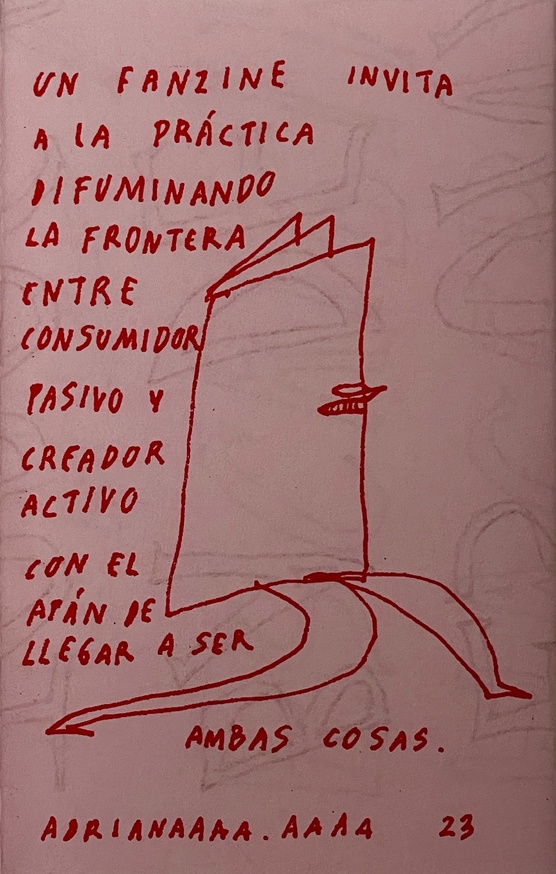 UN FANZINE INVITA
A LA PRÁCTICA
DIFUMINANDO
LA FRONTERA
ENTRE
CONSUMIDOR
PASIVO Y
CREADOR
ACTIVO
CON EL
AFÁN DE
LLEGAR A SER
AMBAS COSAS.
ADRIANAAAA.AAAA 23